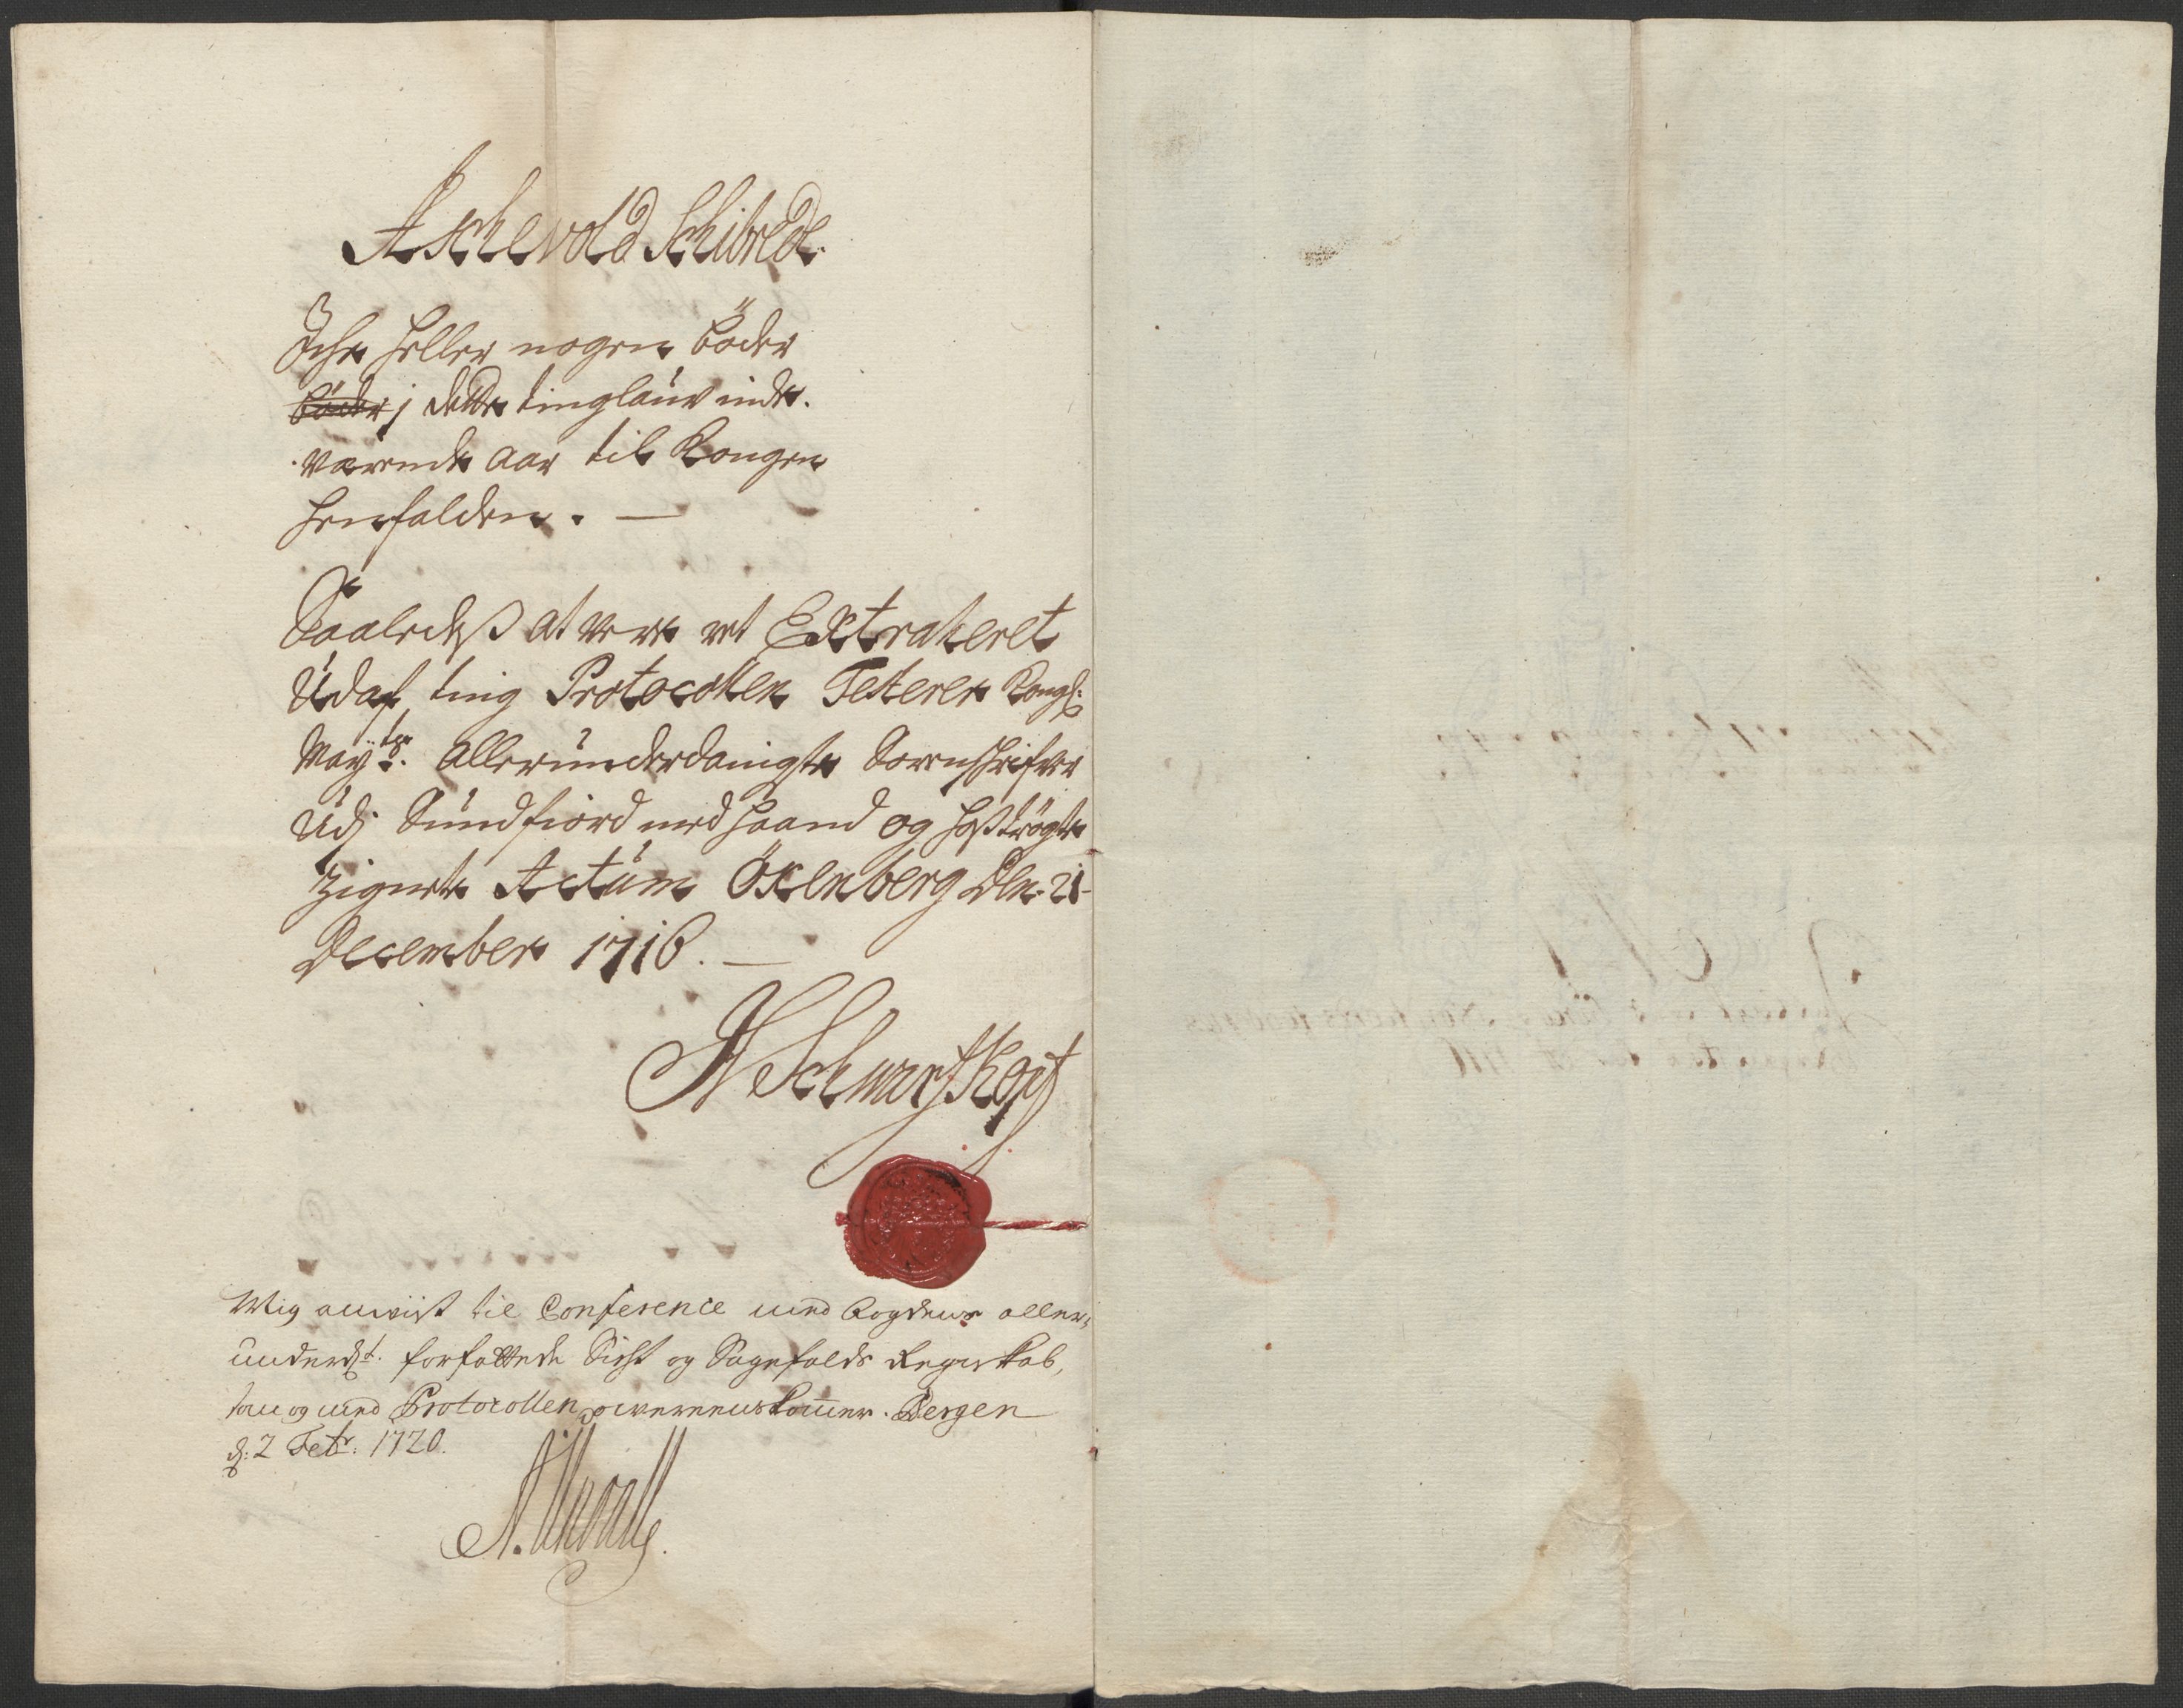 Aschevold Schibrede.
Iche heller nogen böder
böder j dette tinglaüv inde-
værende aar til Kongen
henfalden. —
Saaledeß at vere ret Extraheret
Udaf ting Protocollen Testerer Kongl:
May:tts alleründerdanigste Sorenschrifver
Udj Sündfiord med haand og hoßtrögte
Zignete Actüm Öxenberg Den 21
December 1716. —
N Schwartskopf
Mig anviist til Conference med Fogdens aller-
underd:st forfattede Sicht og Sagefalds Regnskab,
som og med Protocollen overeenskom̄er. Bergen
d: 2 Febr: 1720.